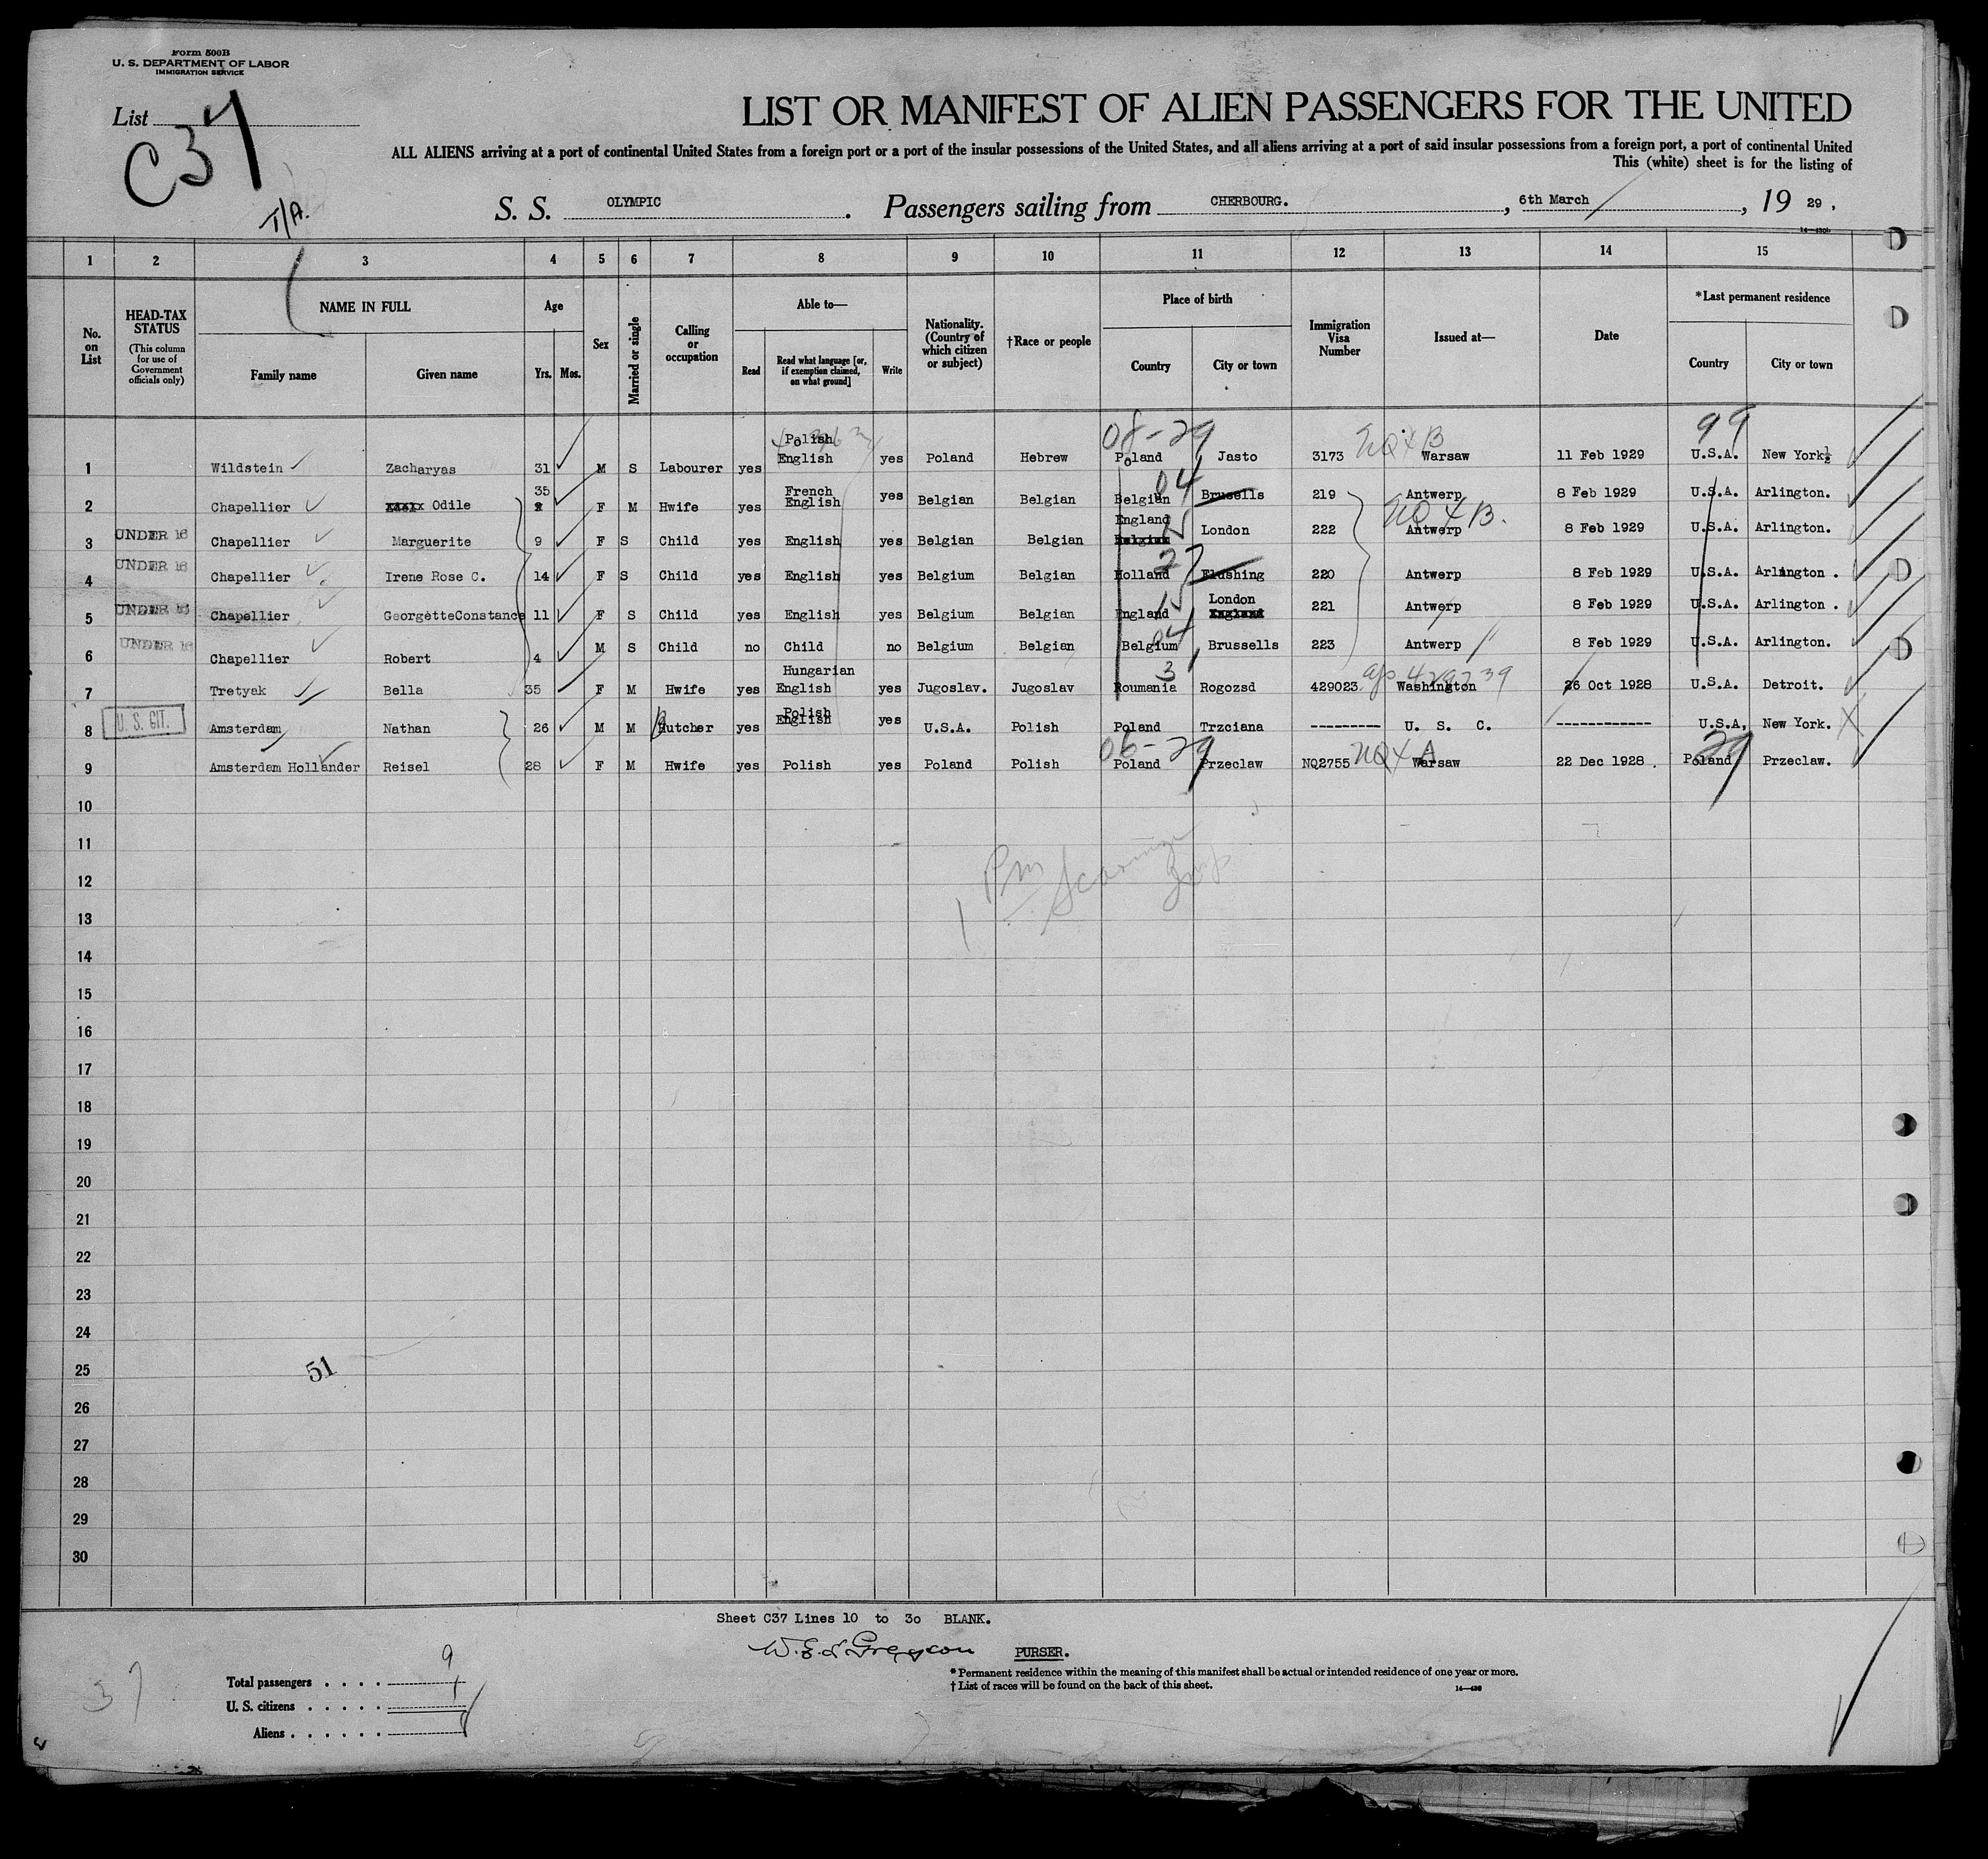 Form 500B
U. S. DEPARTMENT OF LABOR
IMMIGRATION SERVICE
List
C37
T/A.
LIST OR MANIFEST OF ALIEN PASSENGERS FOR THE UNITED
ALL ALIENS arriving at a port of continental United States from a foreign port or a port of the insular possessions of the United States, and all aliens arriving at a port of said insular possessions from a foreign port, a port of continental United
This (white) sheet is for the listing of
S. S. OLYMPIC . Passengers sailing from CHERBOURG. , 6th March , 19 29 ,
1 2 3 4 5 6 7 8 9 10 11 12 13 14 15
No. on List
HEAD-TAX STATUS
(This column for use of Government officials only)
NAME IN FULL
Family name Given name
Age
Yrs. Mos.
Sex
Married or single
Calling or occupation
Able to—
Read
Read what language [or, if exemption claimed, on what ground]
Write
Nationality. (Country of which citizen or subject)
†Race or people
Place of birth
Country City or town
Immigration Visa Number
Issued at—
Date
*Last permanent residence
Country City or town
08-29 NQ4B 99
1 Wildstein Zacharyas 31 M S Labourer yes Polish English yes Poland Hebrew Poland Jasto 3173 Warsaw 11 Feb 1929 U.S.A. New York
2 Chapellier Odile 35 F M Hwife yes French English yes Belgian Belgian Belgian 04 Brusells 219 Antwerp 8 Feb 1929 U.S.A. Arlington.
NQ 4 B.
3 UNDER 16 Chapellier Marguerite 9 F S Child yes English yes Belgian Belgian England Belgium London 222 Antwerp 8 Feb 1929 U.S.A. Arlington.
4 UNDER 16 Chapellier Irene Rose C. 14 F S Child yes English yes Belgium Belgian Holland 27 Flushing 220 Antwerp 8 Feb 1929 U.S.A. Arlington .
5 UNDER 16 Chapellier GeorgetteConstance 11 F S Child yes English yes Belgium Belgian England 15 London England 221 Antwerp 8 Feb 1929 U.S.A. Arlington .
6 UNDER 16 Chapellier Robert 4 M S Child no Child no Belgium Belgian Belgium 04 Brussells 223 Antwerp 8 Feb 1929 U.S.A. Arlington.
7 Tretyak Bella 35 F M Hwife yes Hungarian English yes Jugoslav. Jugoslav Roumania 3 Rogozsd 429023 Washington 26 Oct 1928 U.S.A. Detroit.
8 U. S. CIT. Amsterdam Nathan 26 M M Butcher yes Polish English yes U.S.A. Polish Poland Trzciana --------- U. S. C. ------------ U.S.A. New York. X
06-29 NQ4A 29
9 Amsterdam Hollander Reisel 28 F M Hwife yes Polish yes Poland Polish Poland Przeclaw NQ2755 Warsaw 22 Dec 1928 . Poland Przeclaw.
10
11
12
13
14
15
16
17
18
19
20
21
22
23
24
25
51
26
27
28
29
30
Sheet C37 Lines 10 to 30 BLANK.
PURSER.
*Permanent residence within the meaning of this manifest shall be actual or intended residence of one year or more.
†List of races will be found on the back of this sheet.
14—430
37
Total passengers . . . . 9
U. S. citizens . . . . . 1
Aliens . . . . . .